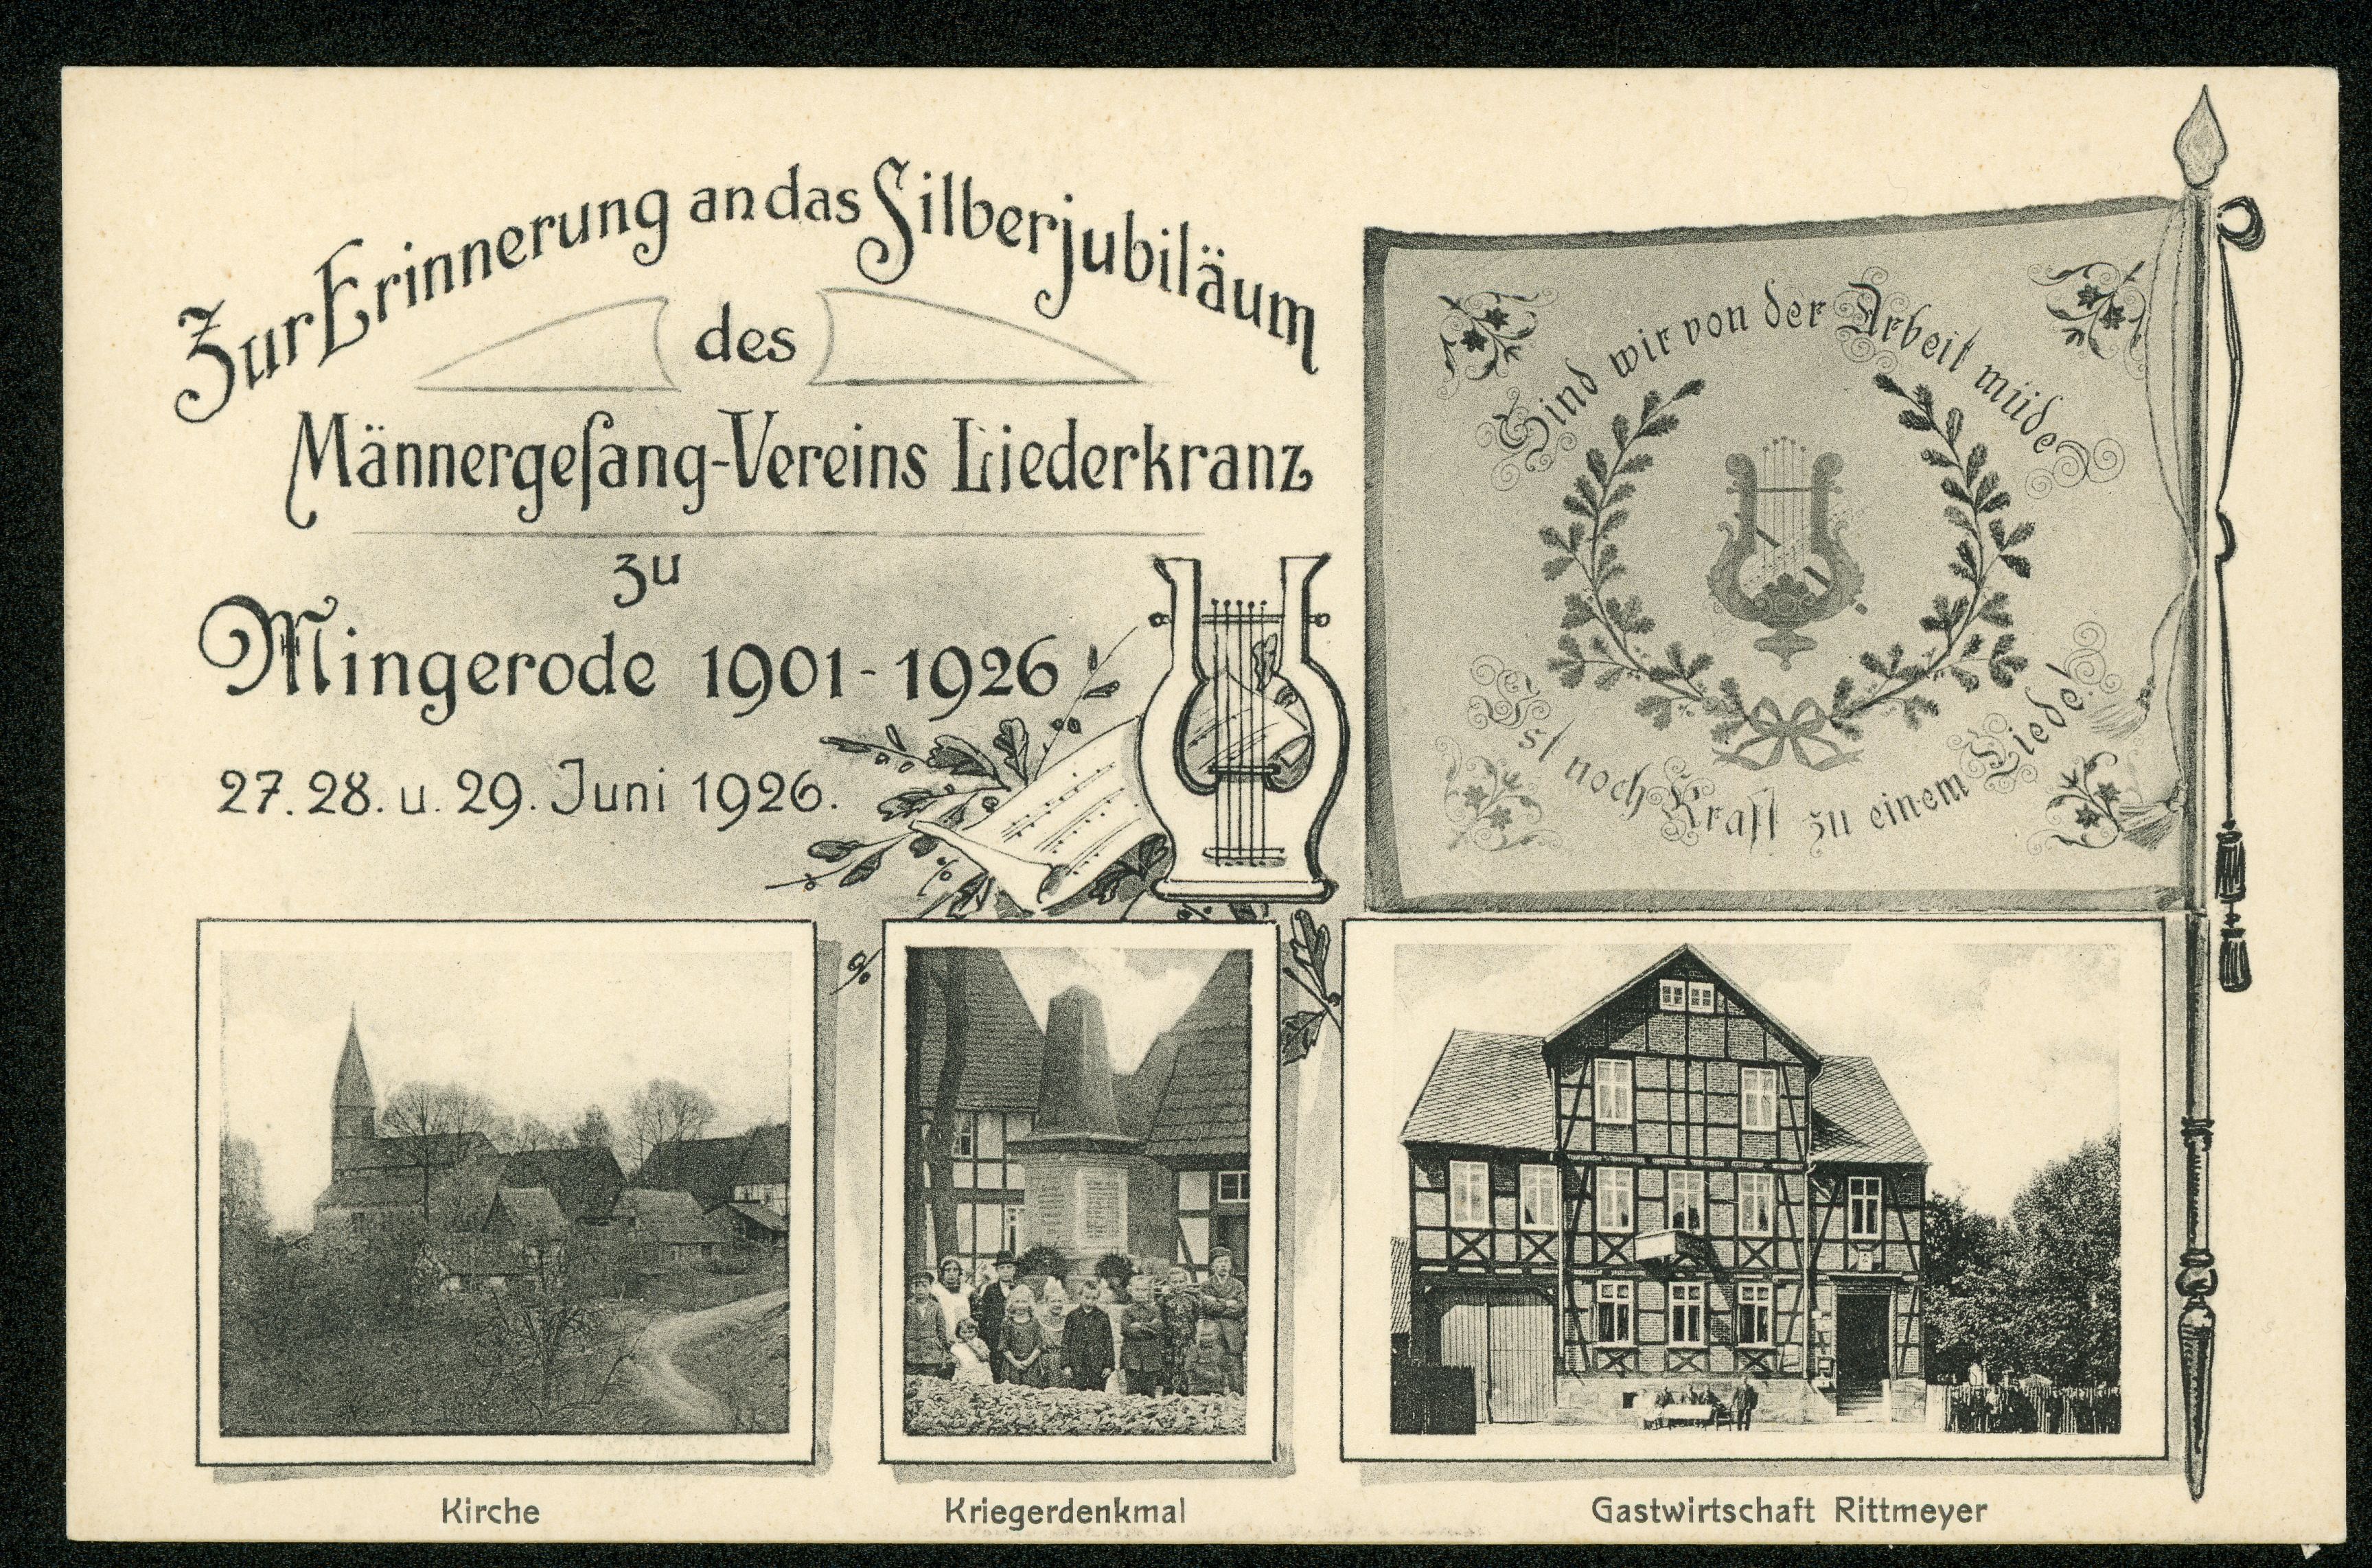 Zur Erinnerung an das Silberjubiläum
des
Männergeſang-Vereins Liederkranz
zu
Mingerode 1901-1926
27. 28. u. 29. Juni 1926.
Sind wir von der Arbeit müde
Ist noch Kraft zu einem Liede!
Kirche
Kriegerdenkmal
Gastwirtschaft Rittmeyer